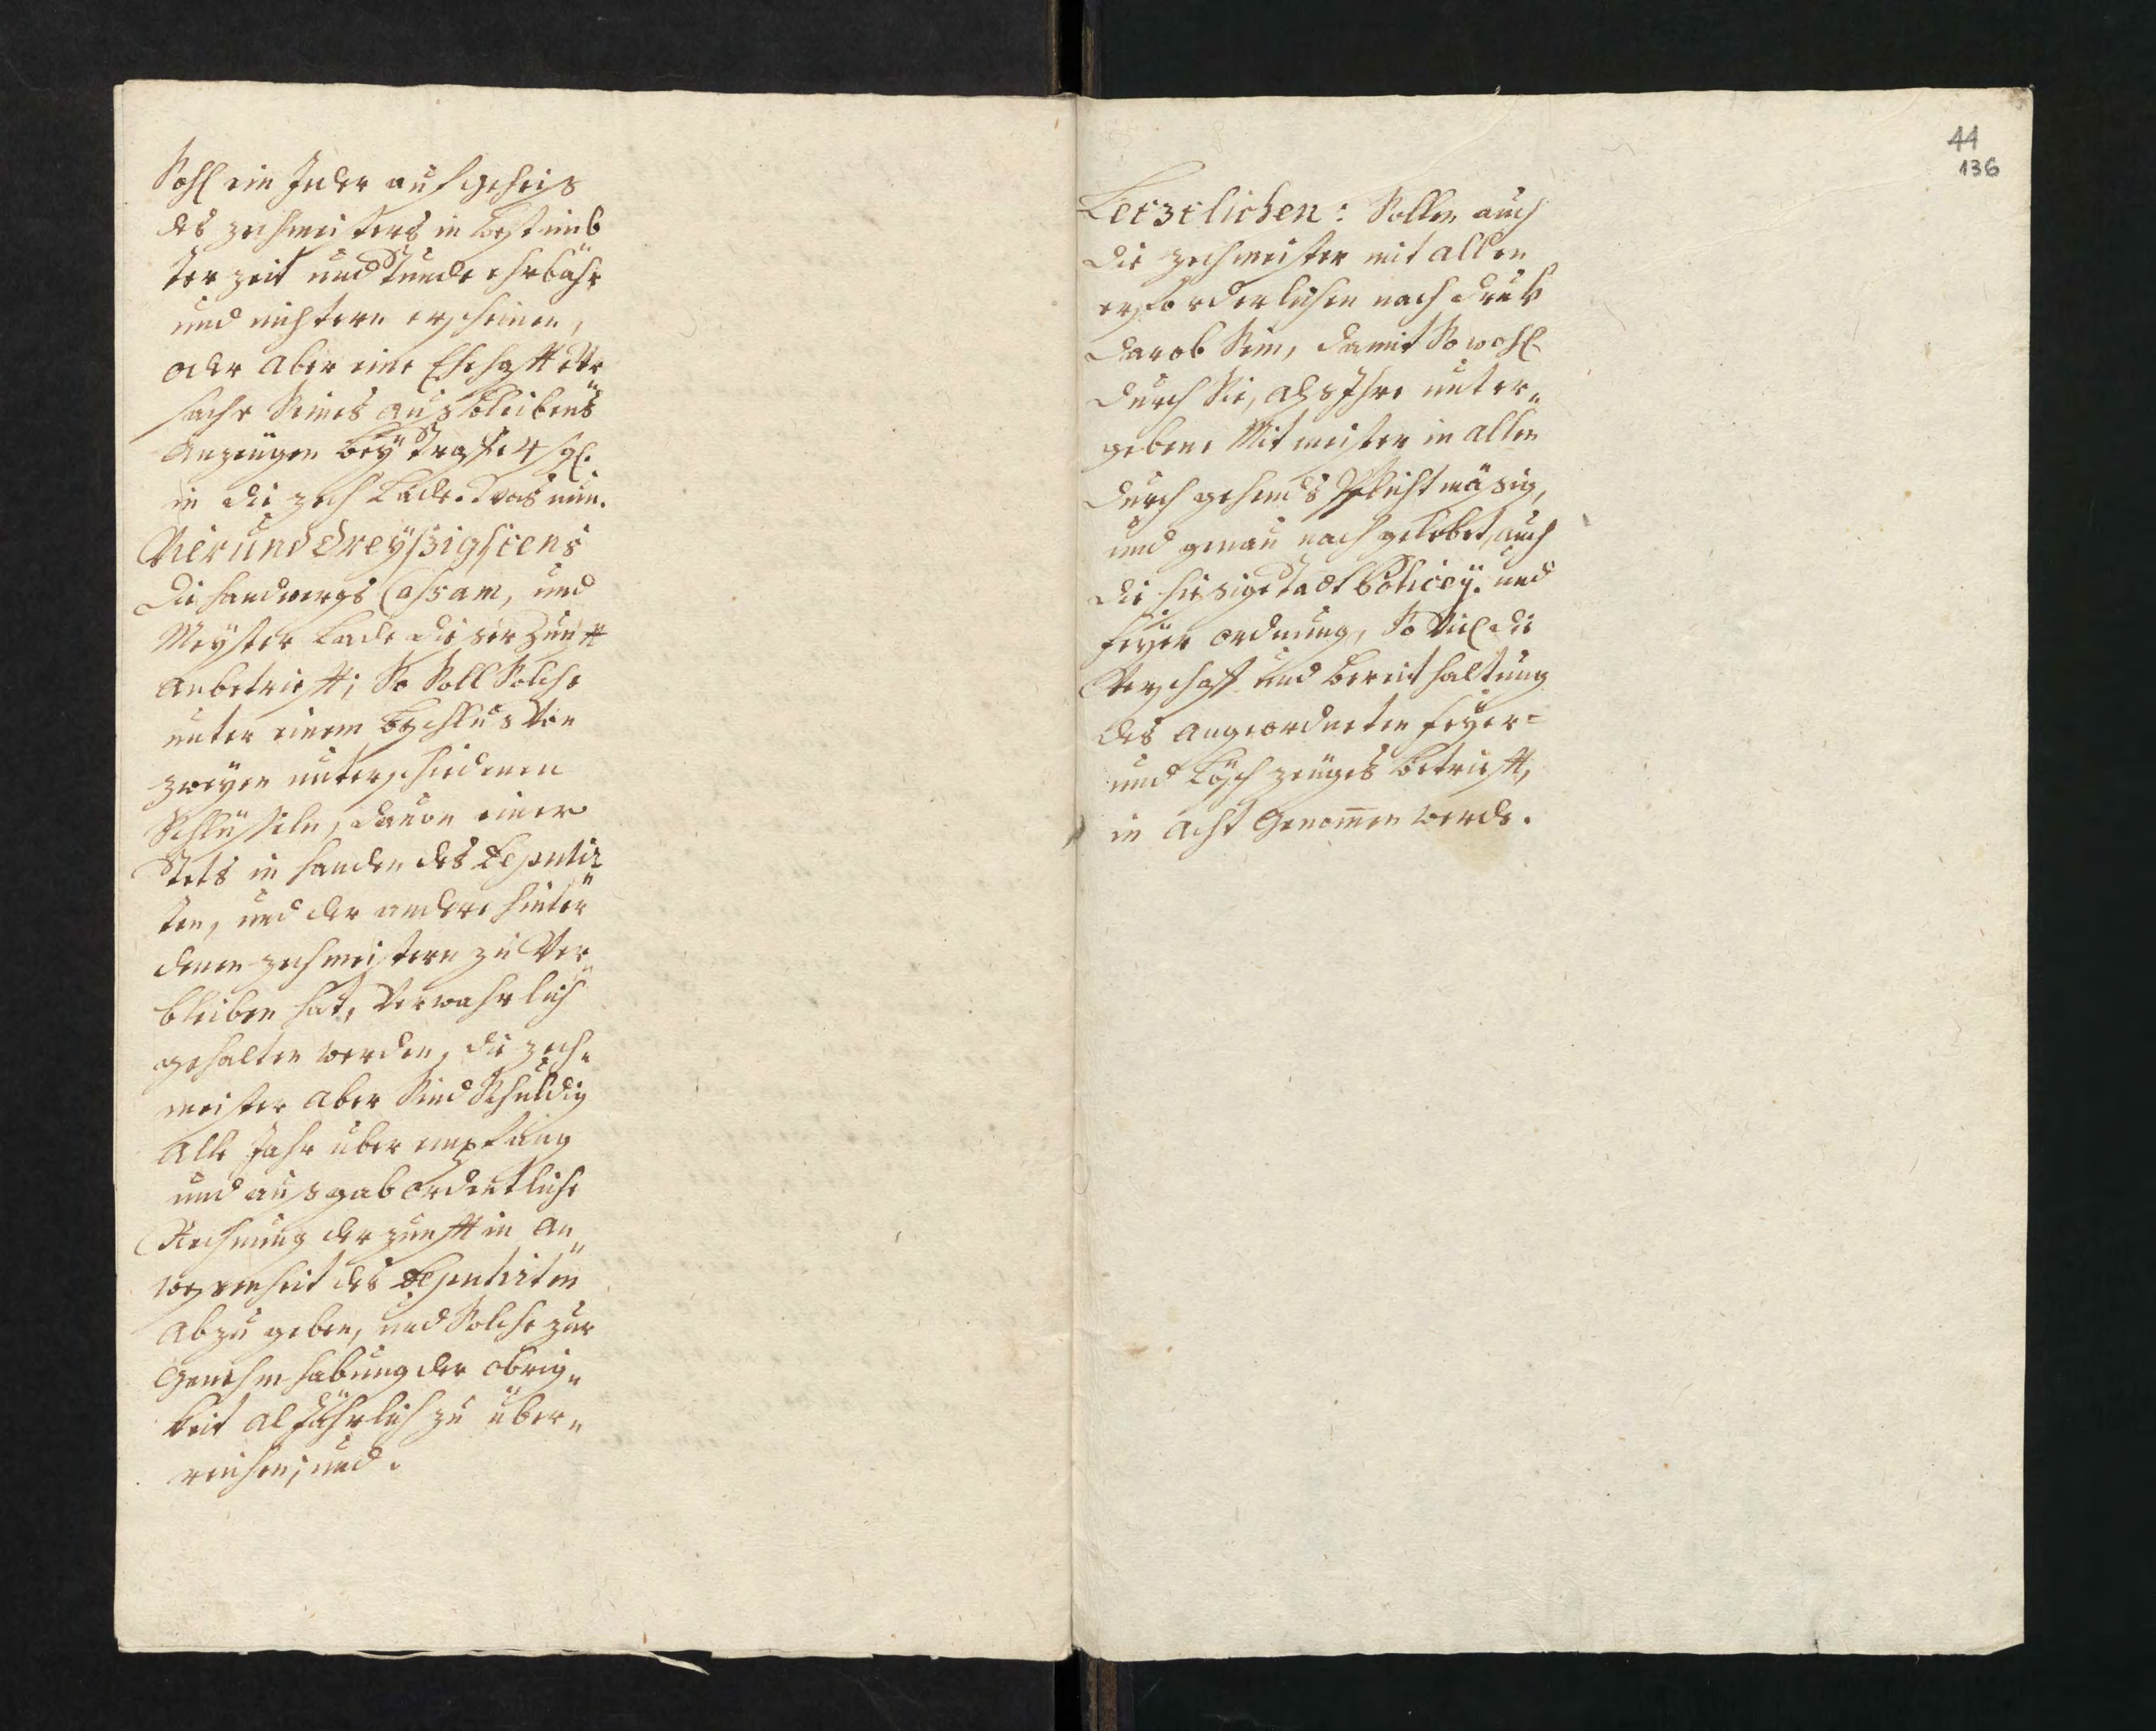 Sohl ein Jeder auf geheis
des zechmeisters in bestimb
ter zeit und Stunde ehrbahr
und nichtern erscheinen,
oder aber eine Ehehafft Ur
sache Seines ausbleibens
anzeugen bey Straffe 4 sgl.
in die zech Lade. Was nun.
Vierunddreyßigstens
die handwergs Cassam, und
Meyster Lade dieser Zunfft
anbetriefft; So Soll Solche
unter einem beschlus Von
zweyen unterschiedenen
Schlüsseln, davon einer
Stets in handen des Deputir„
ten, und der andere hinter
denen zechmeistern zu Ver„
bleiben hat, Verwahrlich
gehalten werden, die zech„
meister aber Sind Schuldig
alle Jahr über empfang
und ausgab ordentliche
Rechnung der zunfft in An„
wesenheit des Deputirten
abzugeben, und Solche zur
Genehmhabung der obrig„
keit al Jährlich zu über„
reichen; und.
44
136
Letztlichen: Sollen auch
die zechmeister mit allen
erforderlichen nachdruk
darob Sein, damit Sowohl
durch Sie, als Ihre unter„
gebene Mitmeister in allen
durchgehends Pflichtmäsig,
und genau nachgelebet, auch
die hiesige Stadt Policey. und
feyer ordnung, So Viel die
Verschaff und bereit haltung
des angeordneten feyer=
und Lösch zeuges betriefft,
in acht Genom̄en werde.